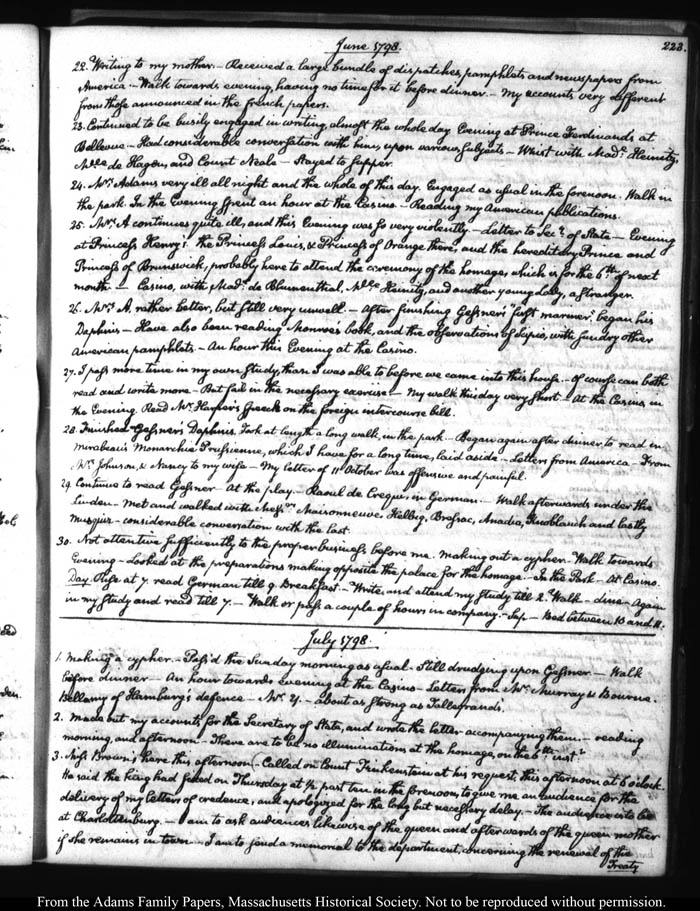 June 1798.
223.
22. Writing to my mother. – Received a large bundle of dispatches, pamphlets and newspapers from
America. – Walk towards evening, having no time for it before dinner. – My accounts very different
from those announced in the french papers.
23. Continued to be busily engaged in writing, almost the whole day. Evening at Prince Ferdinands at
Bellevue – Had considerable conversation with him, upon various subjects – Whist with Made. Heinitz,
Mlle de Hagen, and Count Neale – Stayed to supper.
24. Mrs. Adams very ill all night and the whole of this day. Engaged as usual in the forenoon. Walk in
the park. In the Evening spent an hour at the Casino. – Reading my American publications.
25. Mrs. A continues quite ill, and this Evening was so very violently. – Letter to Secy. of State – Evening
at Princess Henry's. the Princess Louis, & Princess of Orange there, and the hereditary Prince and
Princess of Brunswick, probably here to attend the ceremony of the homage, which is for the 6th. of next
month. – Casino, with Made. de Blumenthal, Mlle Heinitz, and another young lady, a stranger.
26. Mrs. A. rather better, but still very unwell. – After finishing Gessner's "first mariner", began his
Daphnis – Have also been reading Monroe's book, and the observations of Scipio, with sundry other
American pamphlets – An hour this Evening at the Casino.
27. I pass more time in my own study, than I was able to before we came into this house. – of course can both
read and write more – But fail in the necessary exercise – My walk this day very short – At the Casino, in
the Evening. Read Mr. Harper's speech on the foreign intercourse bill.
28. Finished Gessner's Daphnis. Took at length a long walk, in the park – Began again after dinner, to read in
Mirabeau's Monarchie Prussienne, which I have for a long time, laid aside – Letters from America – From
Mrs. Johnson, & Nancy to my wife – My letter of 11 October has offensive and painful.
29. Continue to read Gessner – At the play – Raoul de Crequi, in German – Walk afterwards under the
Linden – Met and walked with Messrs. Maisonneuve, Helbig, Brofsac, Anadia, Knoblauch and lastly
Musquiz – considerable conversation with the last.
30. Not attentive sufficiently to the proper business before me. making out a cypher – Walk towards
Evening – Looked at the preparations making opposite the palace for the homage – In the Park – At Casino.
Day. Rise at 7. read German till 9. Breakfast. – Write, and attend my study till 2. Walk – dine – Again
in my study and read till 7. – Walk or pass a couple of hours in company – Sup – Bed between 10 and 11.
July 1798.
1. Making a cypher. – Pass'd the Sunday morning as usual. Still drudging upon Gessner – Walk
before dinner – An hour towards evening at the Casino – Letters from Mr. Murray & Bourne.
Bellamy of Hamburg's defence – Mr. Y. – about as strong as Tallegrands.
2. Made out my accounts for the Secretary of State, and wrote the letter accompanying them. – reading
morning, and afternoon – There are to be no illuminations at the homage, on the 6th. instt.
3. Mrs. Brown, here this afternoon. Called on Count Finkenstein at his request, this afternoon at 6 o'clock.
He said the King had fixed on Thursday at ½ past ten in the forenoon, to give me an audience for the
delivery of my letters of credence, and apologized for the long but necessary delay. – The audience is to be
at Charlottenburg. – I am to ask audiences likewise of the queen and afterwards of the queen mother
if she remains in town – I am to send a memorial to the department, concerning the renewal of the
Treaty
From the Adams Family Papers, Massachusetts Historical Society. Not to be reproduced without permission.